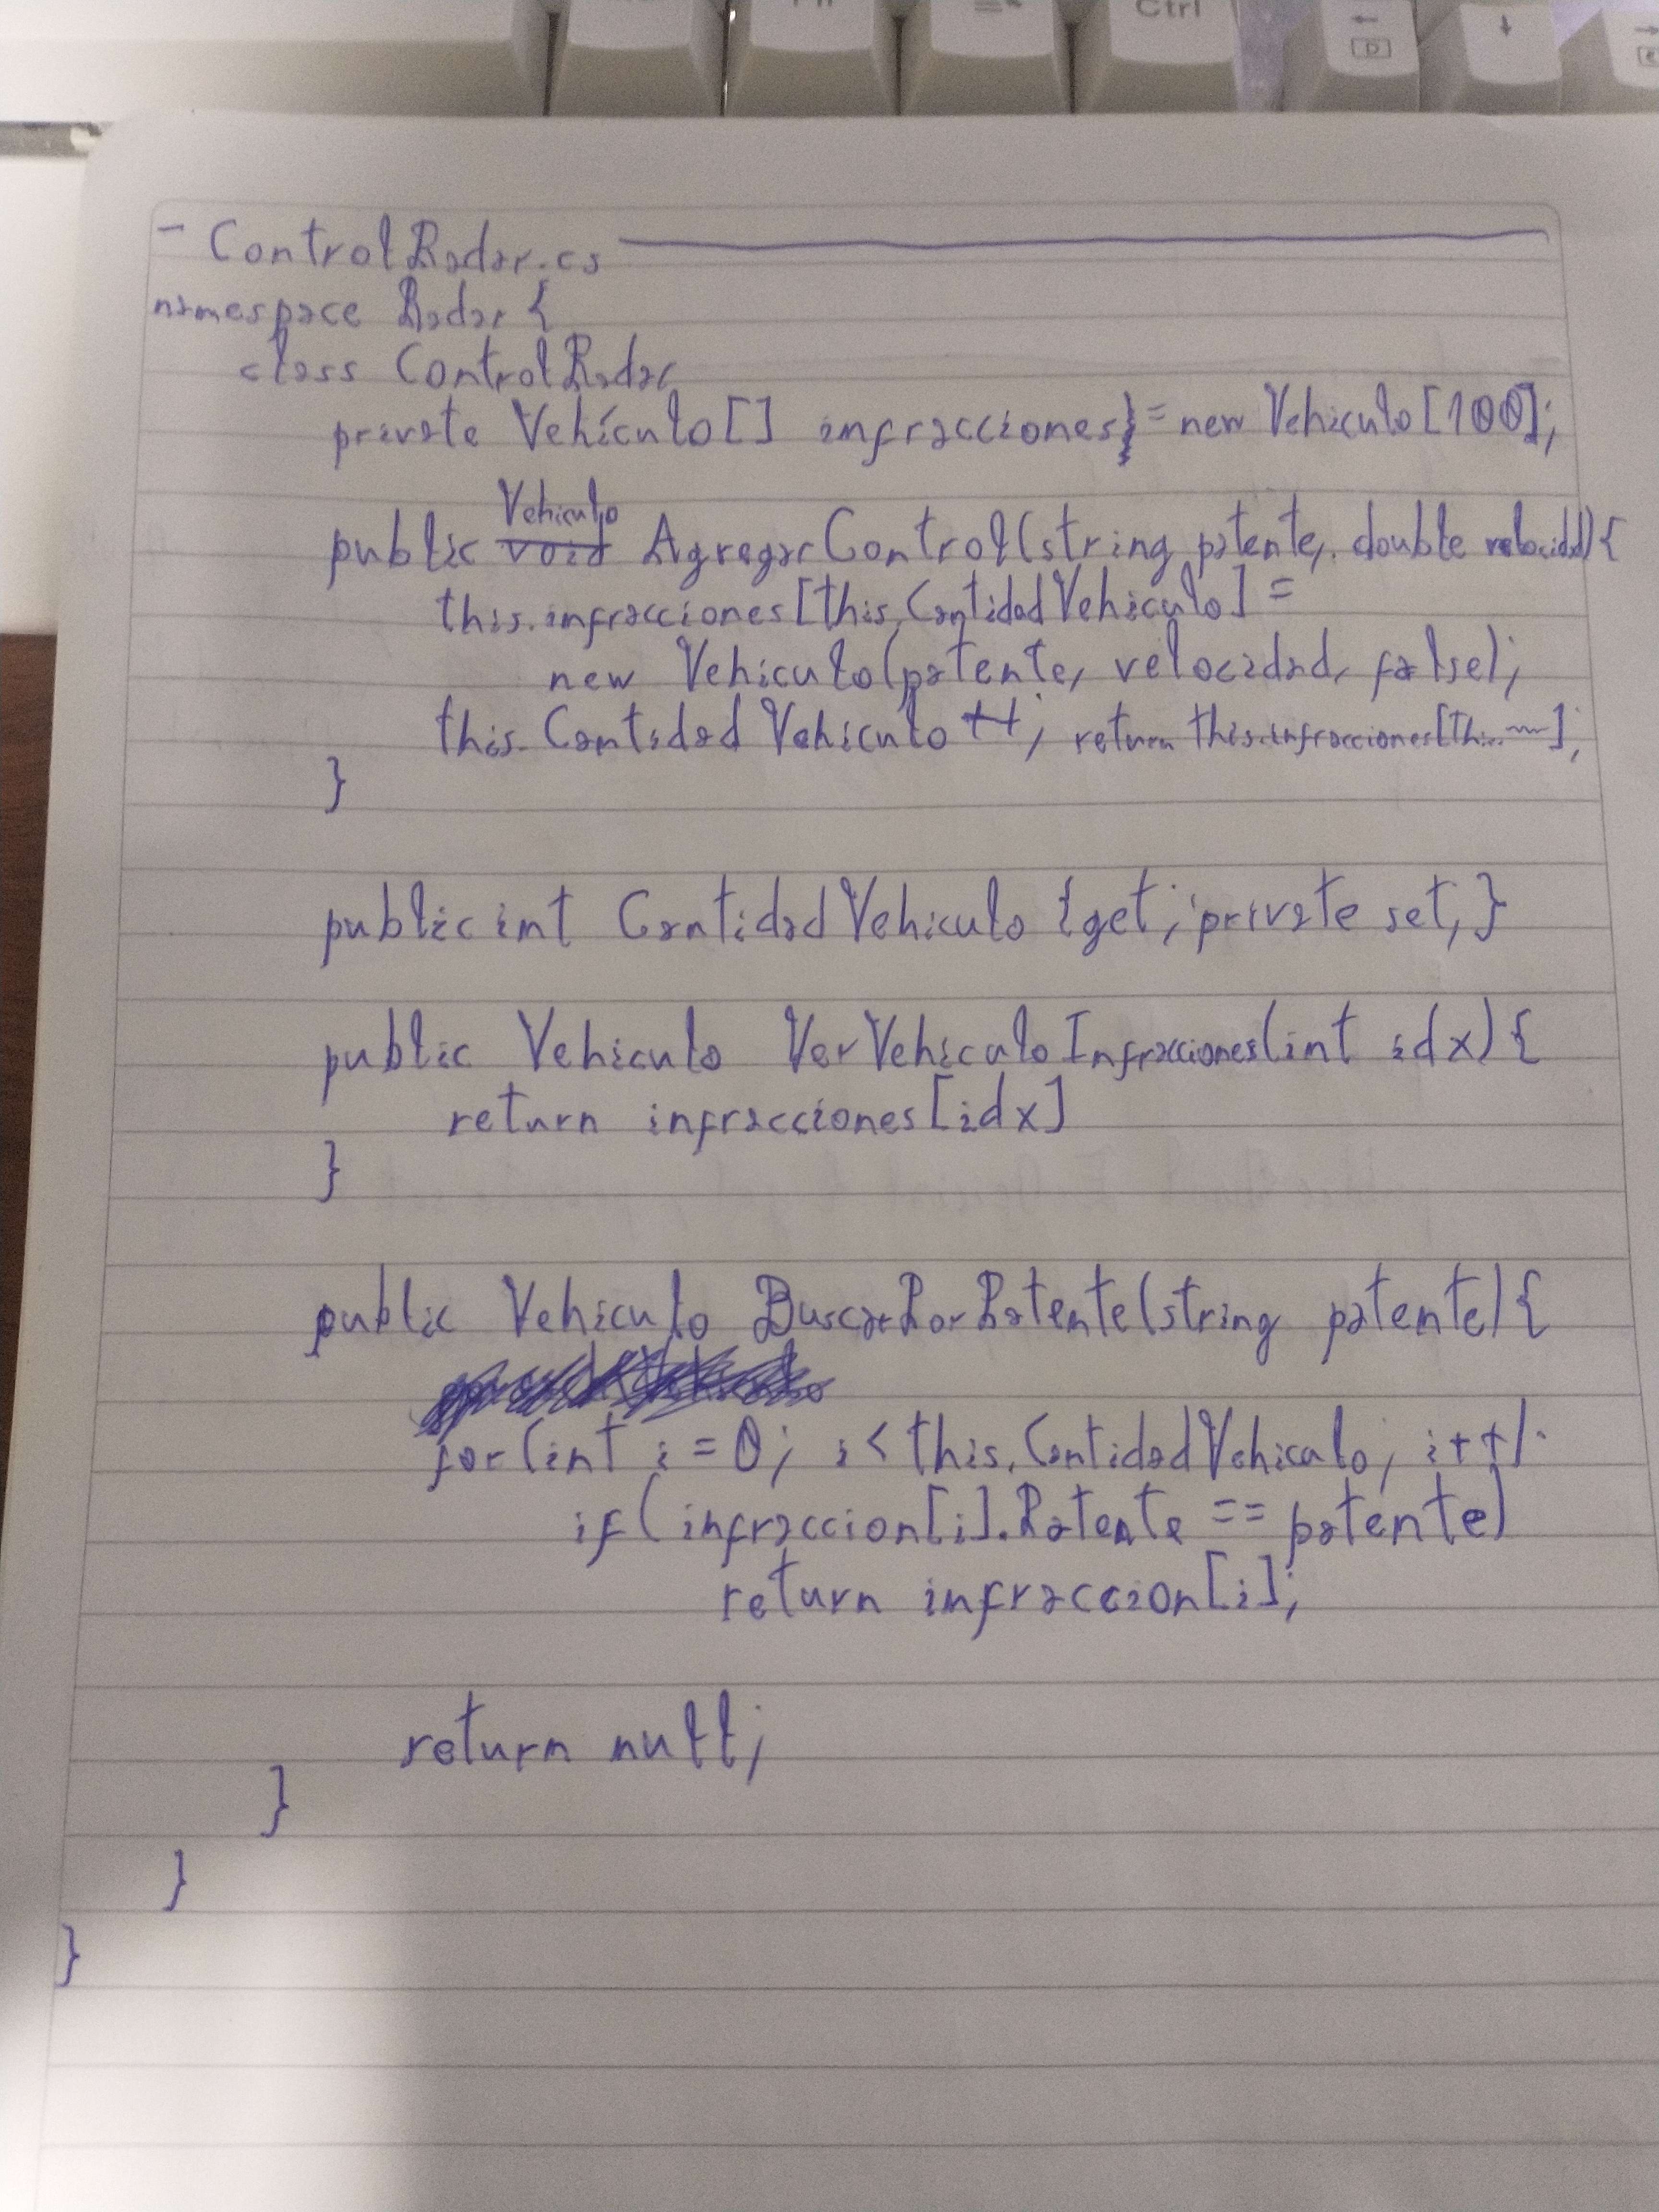 Ctrl
- ControlRadar.cs
namespace Radar {
class ControlRadar
private Vehículo[] infracciones = new Vehiculo[100];
Vehiculo
public void AgregarControl(string patente, double velocidad){
this.infracciones[this.CantidadVehiculo] =
new Vehiculo(patente, velocidad, false);
this.CantidadVehiculo++; return this.infracciones[this...];
}
public int CantidadVehiculo {get; private set;}
public Vehiculo VerVehiculoInfracciones(int idx){
return infracciones[idx]
}
public Vehiculo BuscarPorPatente(string patente){
for(int i=0; i< this.CantidadVehiculo; i++)
if(infraccion[i].Patente == patente)
return infraccion[i];
return null;
}
}
}